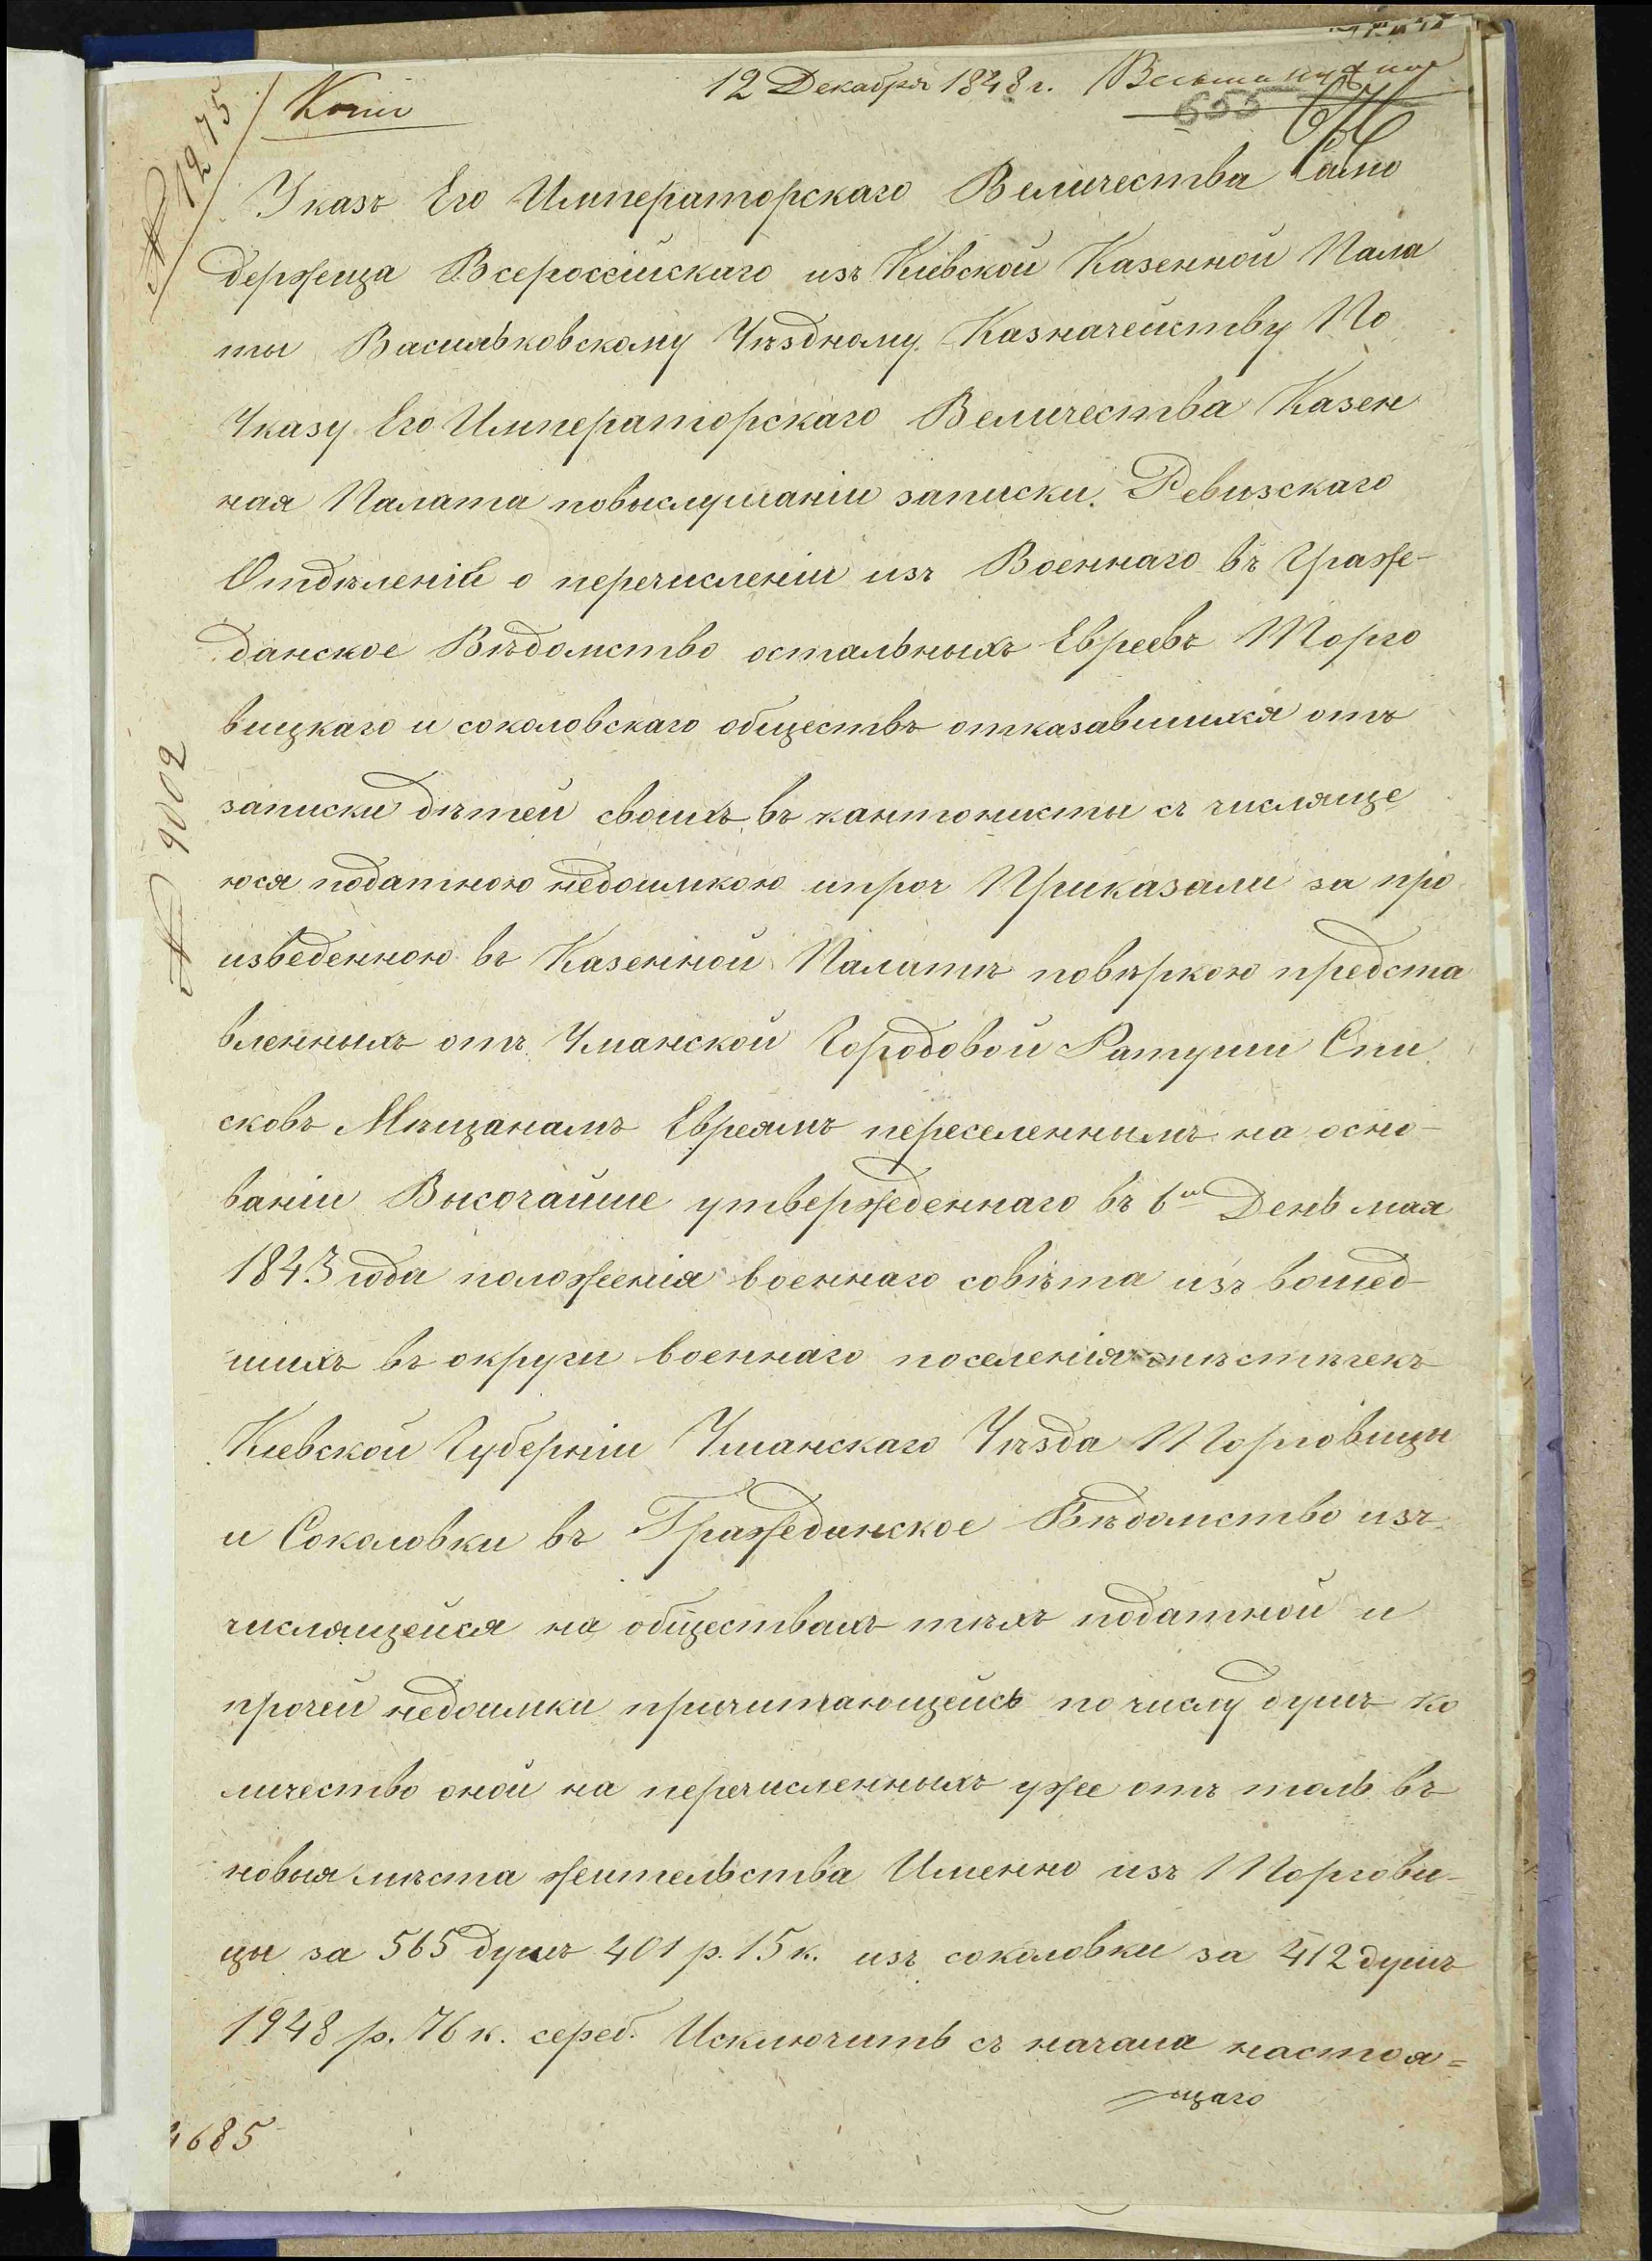 № 1275
Копія
12 Декабря 1848 г. Весьма нужное
653
Указъ Его Императорскаго Величества Само
держца Всероссійскаго изъ Кіевской Казенной Пала
ты Васильковскому Уѣздному Казначейству По
Указу Его Императорскаго Величества Казен
ная Палата повыслушаніи записки Ревизскаго
Отдѣленія о перечисленіи изъ Военнаго въ Граж-
данское Вѣдомство остальныхъ Евреевъ Торго
вицкаго и соколовскаго обществъ отказавшихся отъ
записки дѣтей своихъ въ кантонисты съ числяще
юся податною недоимкою ипроч Приказали за про
изведенною въ Казенной Палатѣ повѣркою предста
вленныхъ отъ Уманской Городовой Ратуши Спи
сковъ Мѣщанамъ Евреямъ переселеннымъ на осно-
ваніи Высочайше утвержденнаго въ 6й День мая
1843 года положенія военнаго совѣта изъ вошед-
шихъ въ округи военнаго поселенія мѣстѣчекъ
Кіевской Губерніи Уманскаго Уѣзда Торговицы
и Соколовки въ Гражданское Вѣдомство изъ
числящейся на обществахъ тѣхъ податной и
прочей недоимки причитающейсь по числу душъ ко
личество оной на перечисленныхъ уже отъ толь въ
новыя мѣста жительства Именно изъ Торгови-
цы за 565 душъ 401 р. 15 к. изъ соколовки за 412 душъ
1948 р. 76 к. сереб. Исключить съ начала настоя=
щаго
№ 9002
4685